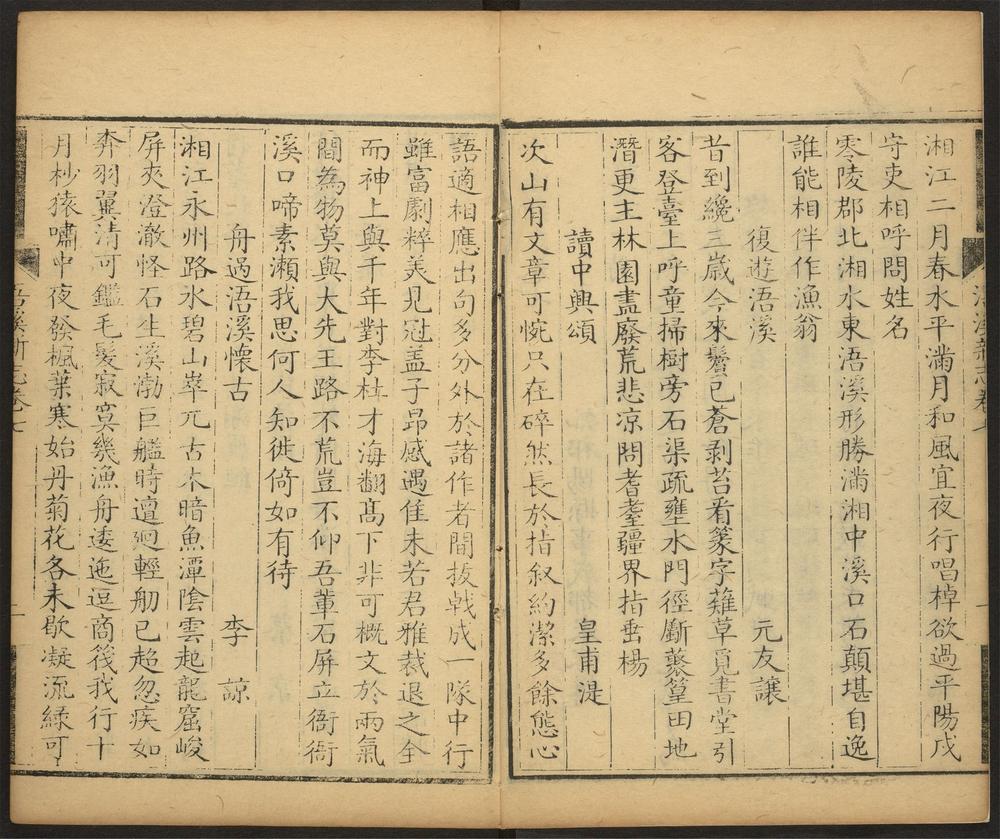 湘江二月春水平滿月和風宜夜行唱棹欲過平陽戍
守吏相呼問姓名
零陵郡北湘水東浯溪形勝滿湘中溪口石顛堪自逸
誰能相伴作漁翁
復遊浯溪 元友讓
昔到纔三歲今來鬢已蒼剥苔看篆字薙草覓書堂引
客登臺上呼童掃樹旁石渠疏壅水門徑斸蘩篁田地
潛更主林園盡廢荒悲凉問耆耋疆界指垂楊
讀中興頌 皇甫湜
次山有文章可惋只在碎然長於指叙約潔多餘態心
語適相應出句多分外於諸作者間拔戟成一隊中行
雖富劇粹美見冠盖子昂感遇佳未若君雅裁退之全
而神上與千年對李杜才海翻髙下非可概文於兩氣
間為物莫與大先王路不荒豈不仰吾輩石屏立衙衙
溪口啼素瀬我思何人知徙倚如有待
舟過浯溪懷古 李諒
湘江永州路水碧山崒兀古木暗魚潭陰雲起龍窟峻
屏夾澄澈怪石生溪渤巨艦時邅迴輕舠已超忽疾如
奔羽翼清可鑑毛髪寂寞幾漁舟逶迤逗商筏我行十
月杪猿嘯中夜發楓葉寒始丹菊花各未歇凝流緑可
浯溪新志卷七